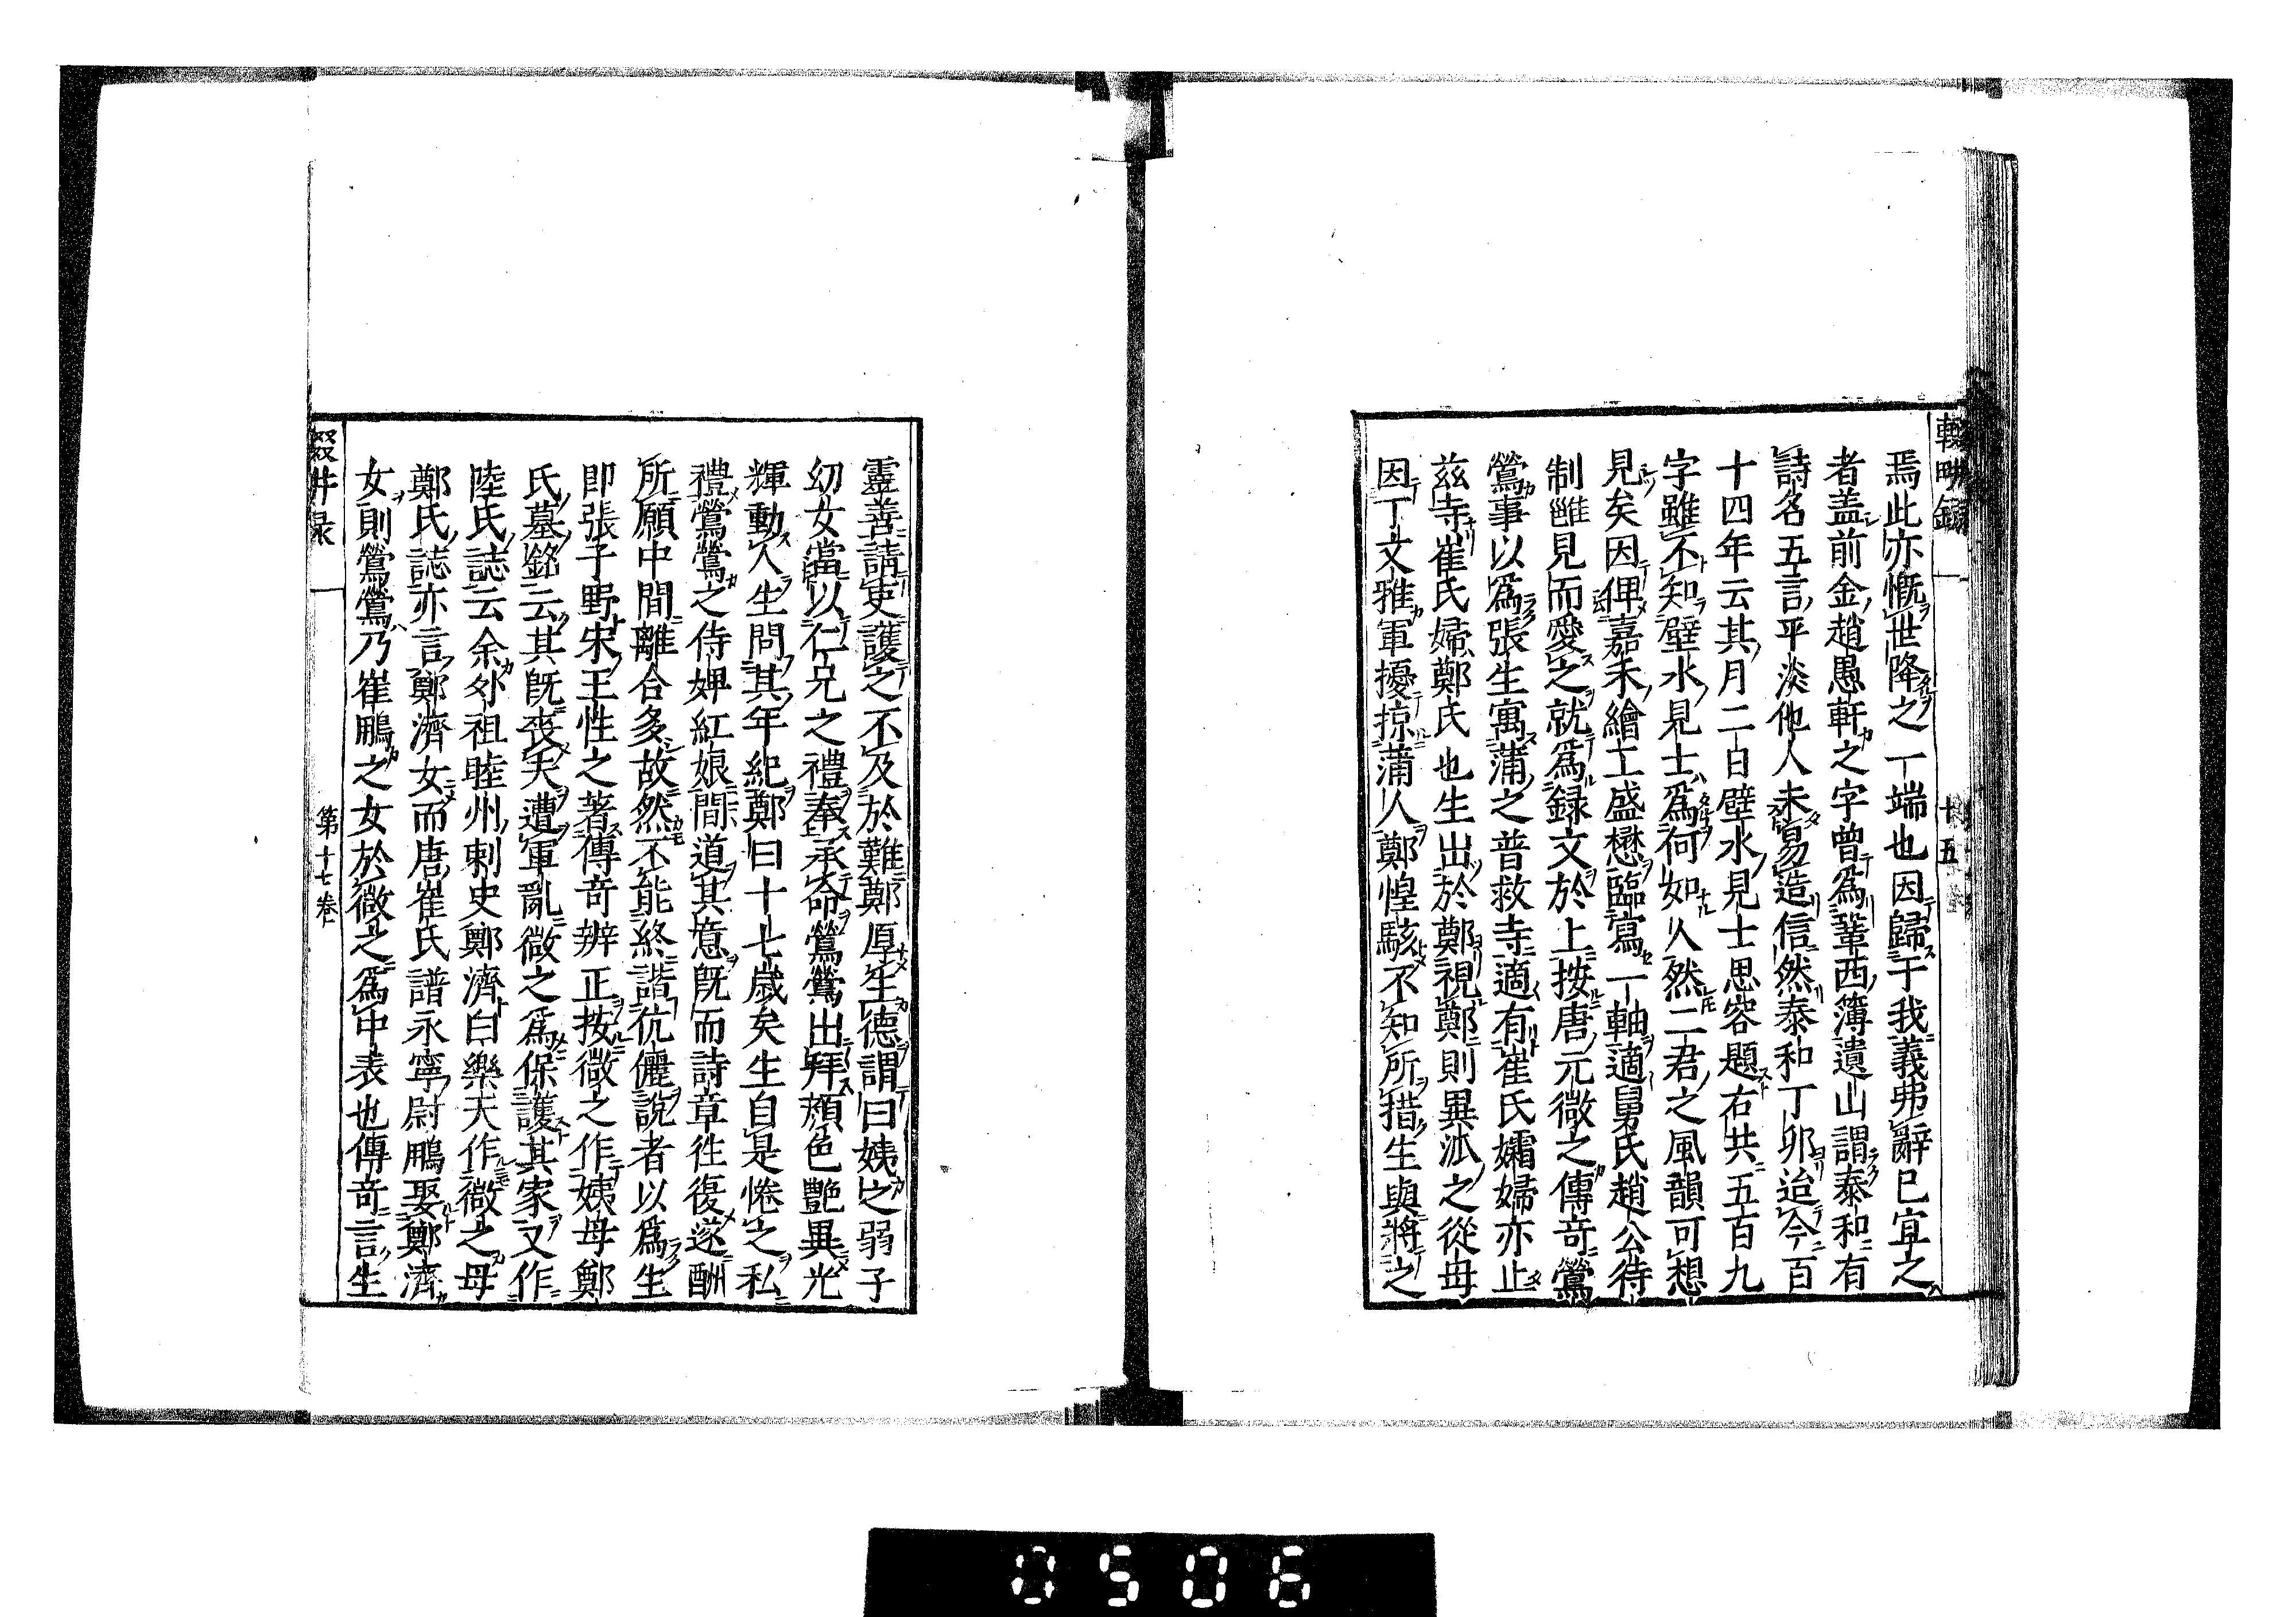 輟畊録
十五
焉此亦慨世降之一端也因歸于我義弗辭已宜之
者盖前金趙愚軒之字曾爲鞏西簿遺山謂泰和有
詩名五言平淡他人未易造信然泰和丁卯迨今百
十四年云其月二日壁水見士思容題右共五百九
字雖不知壁水見士爲何如人然二君之風韻可想
見矣因俾嘉禾繪工盛懋臨寫一軸適舅氏趙公待
制雝見而愛之就爲録文於上按唐元微之傳奇鶯
鶯事以爲張生寓蒲之普救寺適有崔氏孀婦亦止
兹寺崔氏婦鄭氏也生出於鄭視鄭則異派之從母
因丁文雅軍擾掠蒲人鄭惶駭不知所措生與將之
靈善請吏護之不及於難鄭厚生德謂曰姨之弱子
幼女當以仁兄之禮奉承命鶯鶯出拜頽色艶異光
輝動人生問其年紀鄭曰十七歳矣生自是惓之私
禮鶯鶯之侍婢紅娘間道其意既而詩章徃復遂酬
所願中間離合多故然不能終諧伉儷説者以爲生
即張子野宋王性之著傳奇辨正按微之作姨母鄭
氏墓銘云其既喪夫遭軍亂微之爲保護其家又作
陸氏誌云余外祖睦州刺史鄭濟白樂天作微之母
鄭氏誌亦言鄭濟女而唐崔氏譜永寧尉鵬娶鄭濟
女則鶯鶯乃崔鵬之女於微之爲中表也傳奇言生
第十七卷
0506